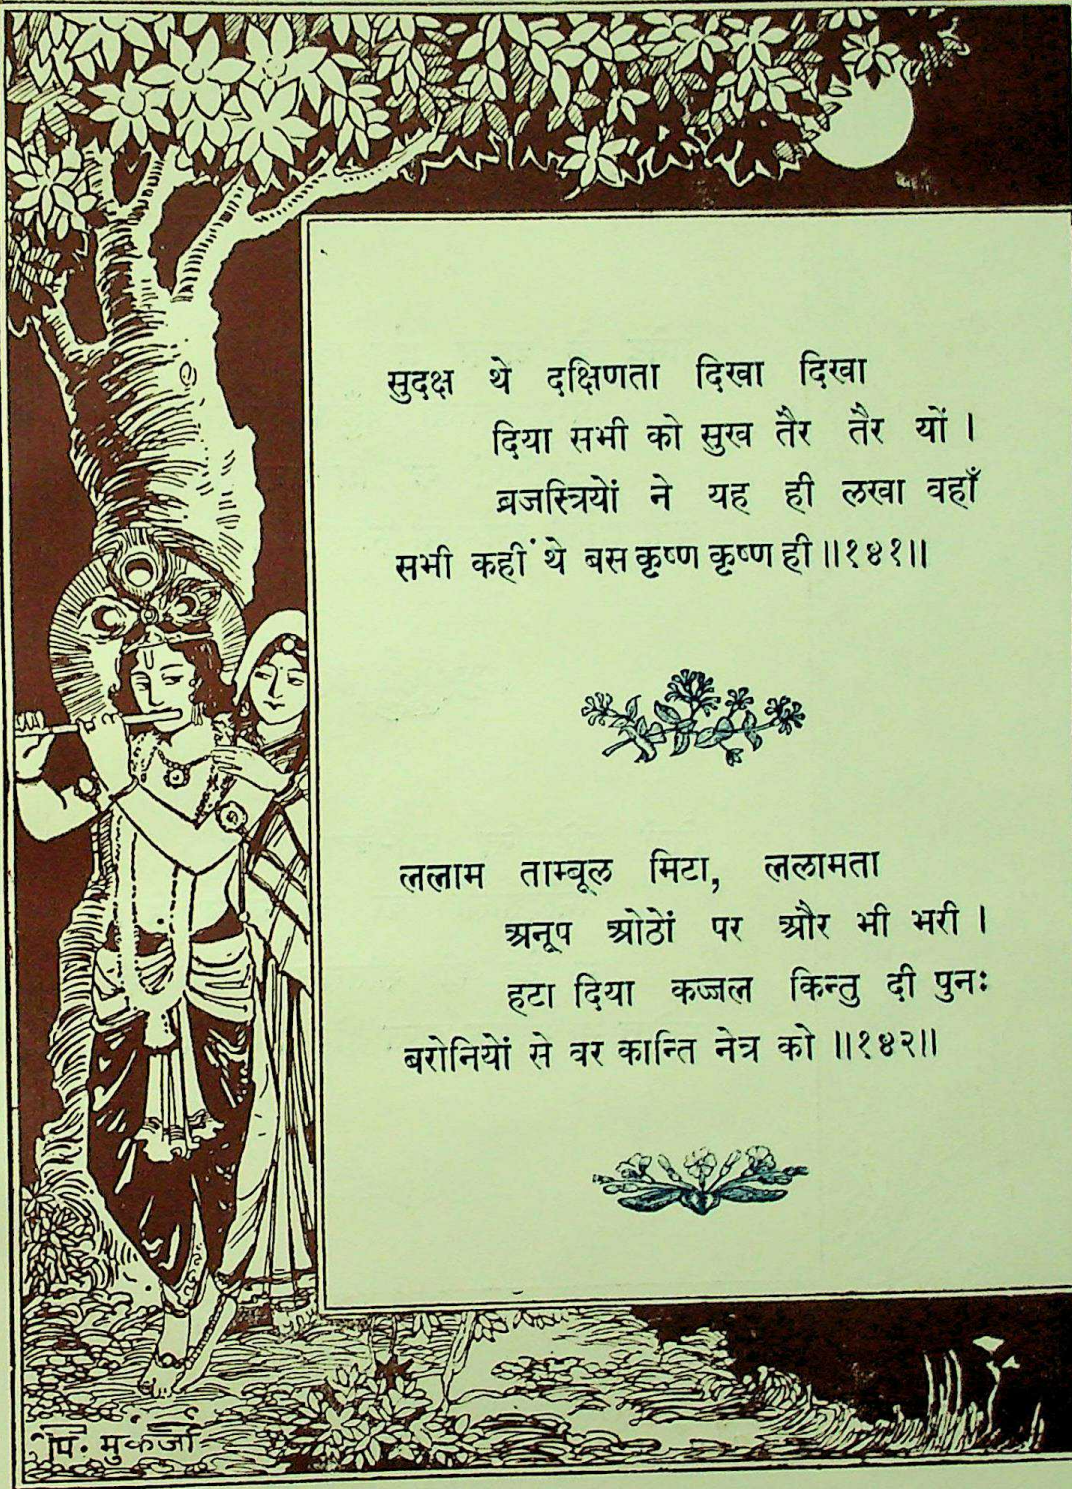 सुदक्ष थे दक्षिणता दिखा दिखा
दिया सभी को सुख तैर तैर यों ।
ब्रजस्त्रियों ने यह ही लखा वहाँ
सभी कहीं थे बस कृष्ण कृष्ण ही ॥१४१॥
ललाम ताम्बूल मिटा, ललामता
अनूप ओठों पर और भी भरी ।
हटा दिया कज्जल किन्तु दी पुनः
बरोनियों से वर कान्ति नेत्र को ॥१४२॥
पि. मुकर्जी